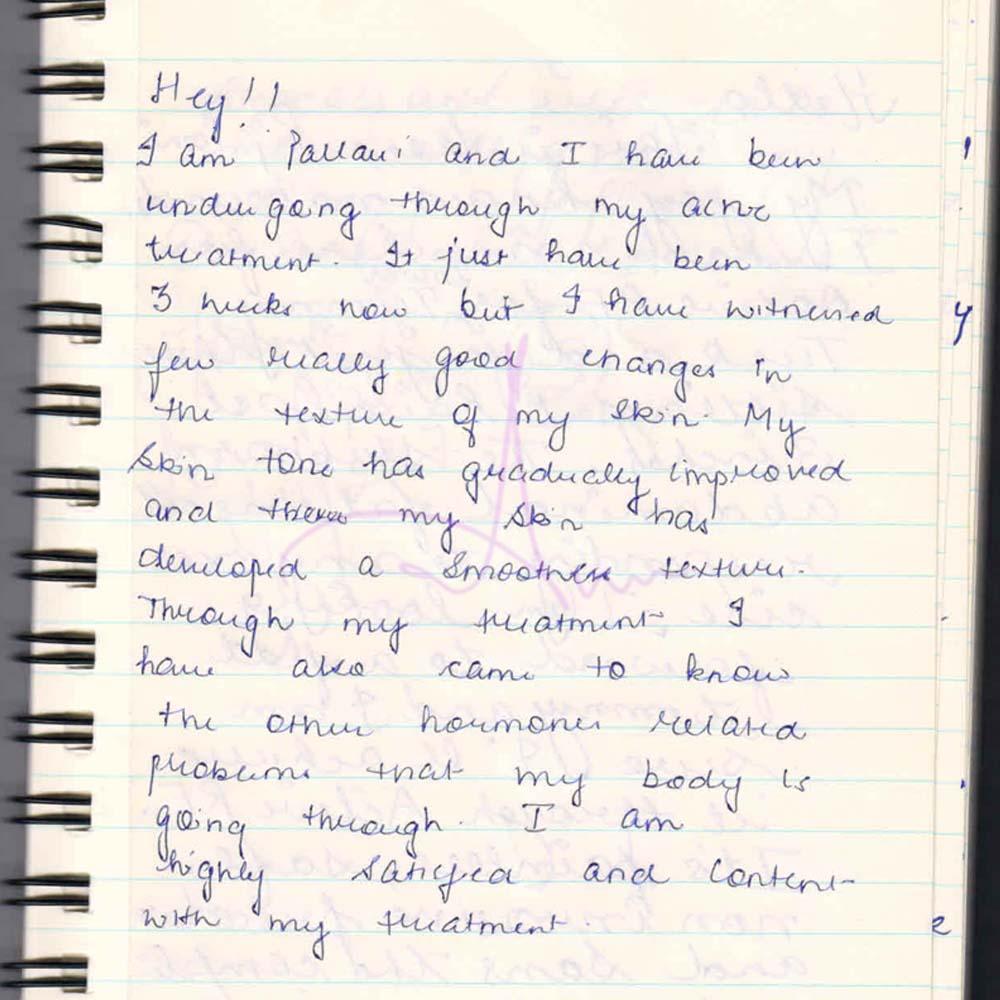 Hey!!
I am Pallavi and I have been
undergoing through my acne
treatment. It just have been
3 weeks now but I have witnessed
few really good changes in
the texture of my skin. My
skin tone has gradually improved
and my skin has
developed a smoother texture.
Through my treatment I
have also came to know
the other hormones related
problems that my body is
going through. I am
highly satisfied and content
with my treatment.